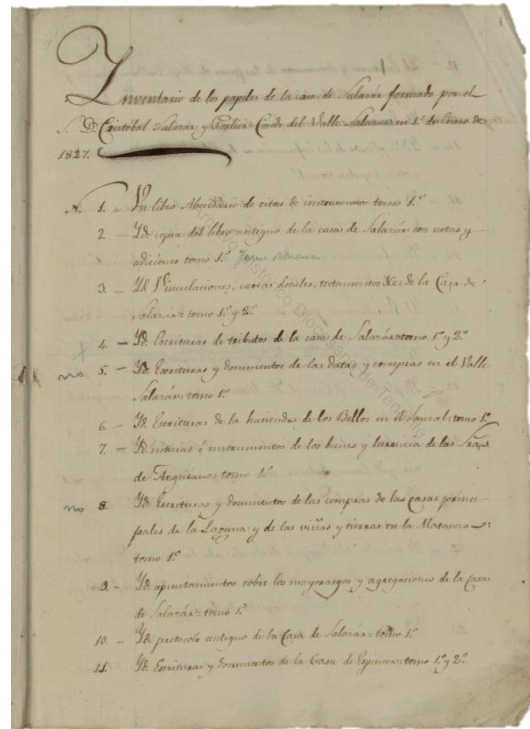 Inventario de los papeles de la casa de Salazar formado por el
S. D. Cristóbal Salazar y Conde del Valle Salazar en 1º de Enero de
1827.
N. 1. – Un libro Abecedario de citas de instrumentos tomo 1.º
2. – Yd. copia del libro antiguo de la casa de Salazár con notas y
adiciones tomo 1.º
3. – Yd. Vinculaciones, cartas dotales, testamentos &c. de la Casa de
Salazár: tomo 1.º y 2.º
4. – Yd. Escrituras de tributos de la casa de Salazár: tomo 1.º y 2.º
no 5. – Yd. Escrituras y documentos de las datas y compras en el Valle
Salazár: tomo 1.º
6. – Yd. Escrituras de la hacienda de los Bellos en el Sauzal: tomo 1.º
7. – Yd. noticias é instrumentos de los bienes y herencia de las
de tomo 1.º
no 8. Yd. Escrituras y documentos de las compras de las casas princi-
pales de la Laguna y de las viñas y tierras en la Matanza:
tomo 1.º
9. – Yd. apuntamientos sobre los mayorazgos y agregaciones de la Casa
de Salazár: tomo 1.º
10. – Yd. protocolo antiguo de la Casa de Salazár: tomo 1.º
11. – Yd. Escrituras y documentos de la Casa de Espinosa: tomo 1.º y 2.º
Archivo Histórico Diocesano de Tenerife